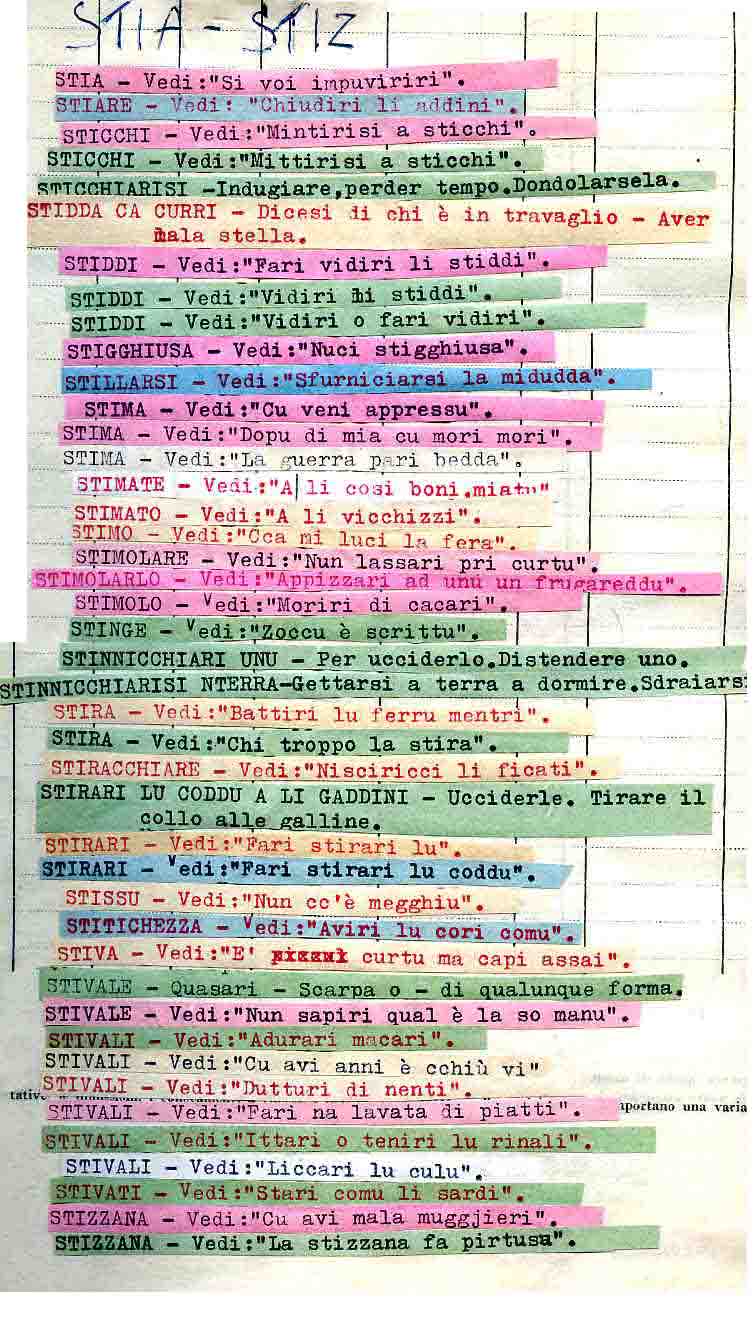 STIA - STIZ
STIA - Vedi:"Si voi impuviriri".
STIARE - Vedi: "Chiudiri li addini".
STICCHI - Vedi:"Mintirisi a sticchi".
STICCHI - Vedi:"Mittirisi a sticchi".
STICCHIARISI -Indugiare,perder tempo.Dondolarsela.
STIDDA CA CURRI - Dicesi di chi è in travaglio - Aver
mala stella.
STIDDI - Vedi:"Fari vidiri li stiddi".
STIDDI - Vedi:"Vidiri li stiddi".
STIDDI - Vedi:"Vidiri o fari vidiri".
STIGGHIUSA - Vedi:"Nuci stigghiusa".
STILLARSI - Vedi:"Sfurniciarsi la midudda".
STIMA - Vedi:"Cu veni appressu".
STIMA - Vedi:"Dopu di mia cu mori mori".
STIMA - Vedi:"La guerra pari bedda".
STIMATE - Vedi:"A li cosi boni,miatu"
STIMATO - Vedi:"A li vicchizzi".
STIMO - Vedi:"Cca mi luci la fera".
STIMOLARE - Vedi:"Nun lassari pri curtu".
STIMOLARLO - Vedi:"Appizzari ad unu un frugareddu".
STIMOLO - Vedi:"Moriri di cacari".
STINGE - Vedi:"Zoccu è scrittu".
STINNICCHIARI UNU - Per ucciderlo.Distendere uno.
STINNICCHIARISI NTERRA-Gettarsi a terra a dormire.Sdraiarsi
STIRA - Vedi:"Battiri lu ferru mentri".
STIRA - Vedi:"Chi troppo la stira".
STIRACCHIARE - Vedi:"Nisciricci li ficati".
STIRARI LU CODDU A LI GADDINI - Ucciderle. Tirare il
collo alle galline.
STIRARI - Vedi:"Fari stirari lu".
STIRARI - Vedi:"Fari stirari lu coddu".
STISSU - Vedi:"Nun cc'è megghiu".
STITICHEZZA - Vedi:"Aviri lu cori comu".
STIVA - Vedi:"E' curtu ma capi assai".
STIVALE - Quasari - Scarpa o - di qualunque forma.
STIVALE - Vedi:"Nun sapiri qual è la so manu".
STIVALI - Vedi:"Adurari macari".
STIVALI - Vedi:"Cu avi anni è cchiù vi"
STIVALI - Vedi:"Dutturi di nenti".
STIVALI - Vedi:"Fari na lavata di piatti". portano una varia
STIVALI - Vedi:"Ittari o teniri lu rinali".
STIVALI - Vedi:"Liccari lu culu".
STIVATI - Vedi:"Stari comu li sardi".
STIZZANA - Vedi:"Cu avi mala muggjieri".
STIZZANA - Vedi:"La stizzana fa pirtusa".